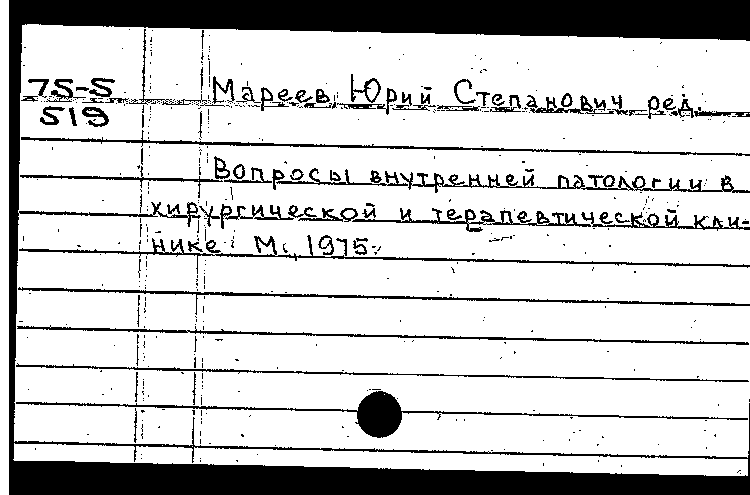 75-5
519
Мареев, Юрий Степанович ред.
Вопросы внутренней патологии в
хирургической и терапевтической кли-
нике. М., 1975.